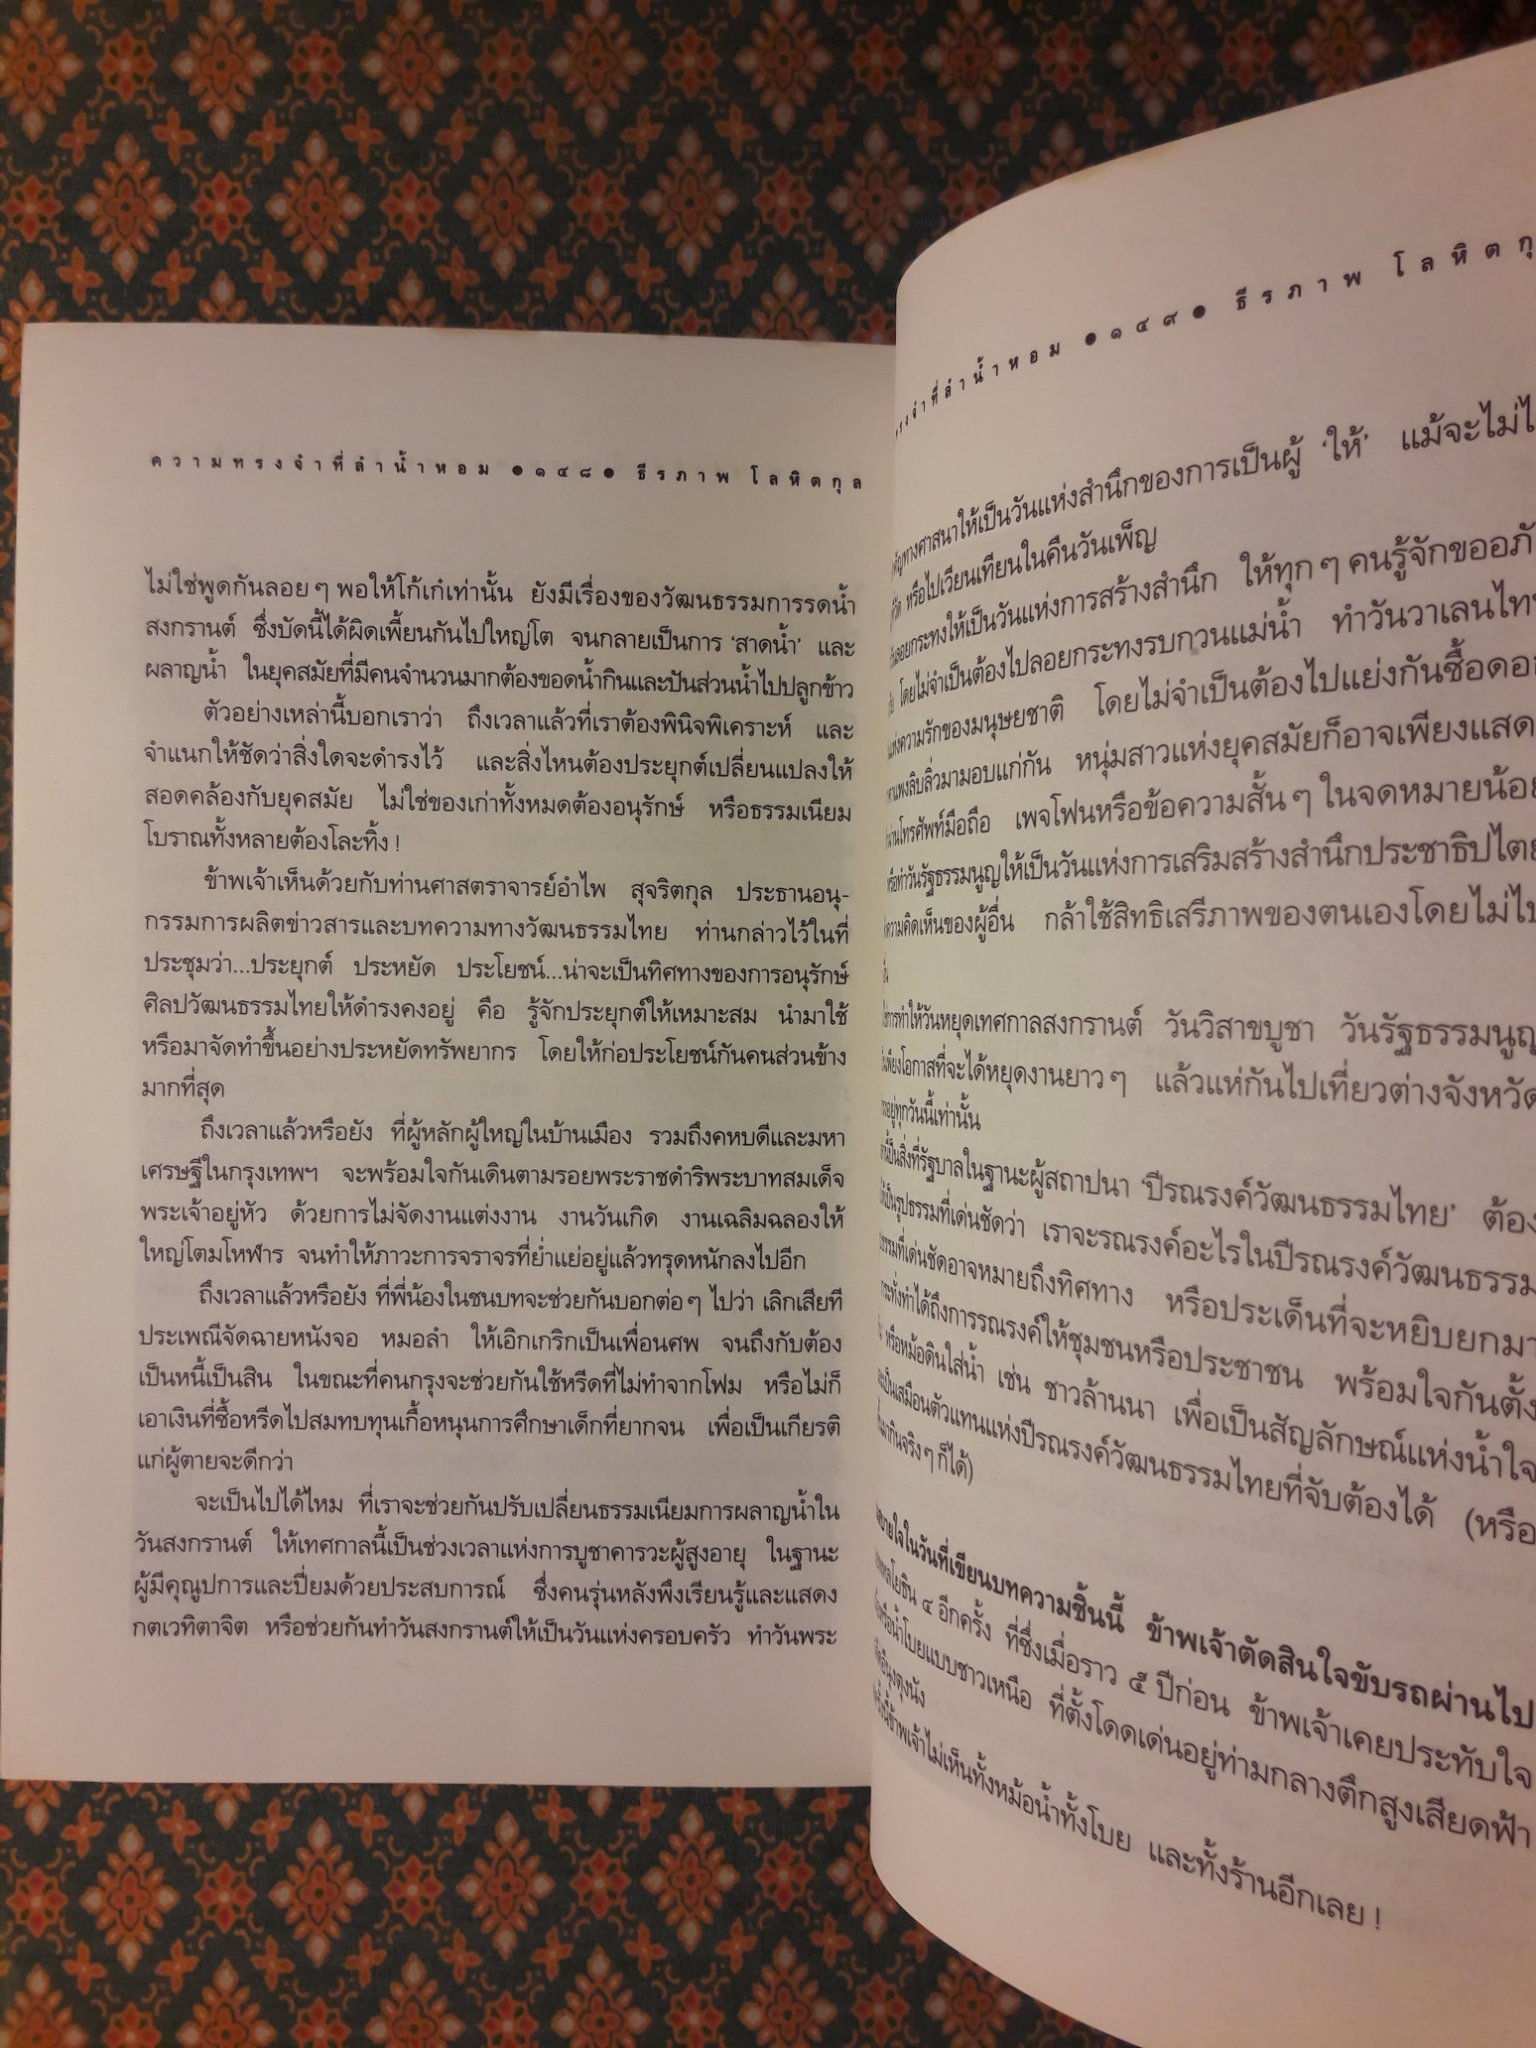 ความทรงจำที่ลำน้ำหอม ●๑๔๘● ธีรภาพ โลหิตกุล
ไม่ใช่พูดกันลอยๆ พอให้โก้เก๋เท่านั้น ยังมีเรื่องของวัฒนธรรมการรดน้ำ
สงกรานต์ ซึ่งบัดนี้ได้ผิดเพี้ยนกันไปใหญ่โต จนกลายเป็นการ ‘สาดน้ำ’ และ
ผลาญน้ำ ในยุคสมัยที่มีคนจำนวนมากต้องขอดน้ำกินและปันส่วนน้ำไปปลูกข้าว
ตัวอย่างเหล่านี้บอกเราว่า ถึงเวลาแล้วที่เราต้องพินิจพิเคราะห์ และ
จำแนกให้ชัดว่าสิ่งใดจะดำรงไว้ และสิ่งไหนต้องประยุกต์เปลี่ยนแปลงให้
สอดคล้องกับยุคสมัย ไม่ใช่ของเก่าทั้งหมดต้องอนุรักษ์ หรือธรรมเนียม
โบราณทั้งหลายต้องโละทิ้ง !
ข้าพเจ้าเห็นด้วยกับท่านศาสตราจารย์อำไพ สุจริตกุล ประธานอนุ-
กรรมการผลิตข่าวสารและบทความทางวัฒนธรรมไทย ท่านกล่าวไว้ในที่
ประชุมว่า...ประยุกต์ ประหยัด ประโยชน์...น่าจะเป็นทิศทางของการอนุรักษ์
ศิลปวัฒนธรรมไทยให้ดำรงคงอยู่ คือ รู้จักประยุกต์ให้เหมาะสม นำมาใช้
หรือมาจัดทำขึ้นอย่างประหยัดทรัพยากร โดยให้ก่อประโยชน์กันคนส่วนข้าง
มากที่สุด
ถึงเวลาแล้วหรือยัง ที่ผู้หลักผู้ใหญ่ในบ้านเมือง รวมถึงคหบดีและมหา
เศรษฐีในกรุงเทพฯ จะพร้อมใจกันเดินตามรอยพระราชดำริพระบาทสมเด็จ
พระเจ้าอยู่หัว ด้วยการไม่จัดงานแต่งงาน งานวันเกิด งานเฉลิมฉลองให้
ใหญ่โตมโหฬาร จนทำให้ภาวะการจราจรที่ย่ำแย่อยู่แล้วทรุดหนักลงไปอีก
ถึงเวลาแล้วหรือยัง ที่พี่น้องในชนบทจะช่วยกันบอกต่อๆ ไปว่า เลิกเสียที
ประเพณีจัดฉายหนังจอ หมอลำ ให้เอิกเกริกเป็นเพื่อนศพ จนถึงกับต้อง
เป็นหนี้เป็นสิน ในขณะที่คนกรุงจะช่วยกันใช้หรีดที่ไม่ทำจากโฟม หรือไม่ก็
เอาเงินที่ซื้อหรีดไปสมทบทุนเกื้อหนุนการศึกษาเด็กที่ยากจน เพื่อเป็นเกียรติ
แก่ผู้ตายจะดีกว่า
จะเป็นไปได้ไหม ที่เราจะช่วยกันปรับเปลี่ยนธรรมเนียมการผลาญน้ำใน
วันสงกรานต์ ให้เทศกาลนี้เป็นช่วงเวลาแห่งการบูชาคารวะผู้สูงอายุ ในฐานะ
ผู้มีคุณูปการและเปี่ยมด้วยประสบการณ์ ซึ่งคนรุ่นหลังพึงเรียนรู้และแสดง
กตเวทิตาจิต หรือช่วยกันทำวันสงกรานต์ให้เป็นวันแห่งครอบครัว ทำวันพระ
ทรงจำที่ลำน้ำหอม ●๑๔๙● ธีรภาพ โลหิตกุ
ทางศาสนาให้เป็นวันแห่งสำนึกของการเป็นผู้ ‘ให้’ แม้จะไม่ไ
หรือไปเวียนเทียนในคืนวันเพ็ญ
ลอยกระทงให้เป็นวันแห่งการสร้างสำนึก ให้ทุกๆ คนรู้จักขออภั
โดยไม่จำเป็นต้องไปลอยกระทงรบกวนแม่น้ำ ทำวันวาเลนไท
แห่งความรักของมนุษยชาติ โดยไม่จำเป็นต้องไปแย่งกันซื้อดอก
แพงลิบลิ่วมามอบแก่กัน หนุ่มสาวแห่งยุคสมัยก็อาจเพียงแสด
ผ่านโทรศัพท์มือถือ เพจโฟนหรือข้อความสั้นๆ ในจดหมายน้อย
หรือทำวันรัฐธรรมนูญให้เป็นวันแห่งการเสริมสร้างสำนึกประชาธิปไตย
ความคิดเห็นของผู้อื่น กล้าใช้สิทธิเสรีภาพของตนเองโดยไม่ไป
การทำให้วันหยุดเทศกาลสงกรานต์ วันวิสาขบูชา วันรัฐธรรมนูญ
เพียงโอกาสที่จะได้หยุดงานยาวๆ แล้วแห่กันไปเที่ยวต่างจังหวัด
อยู่ทุกวันนี้เท่านั้น
เป็นสิ่งที่รัฐบาลในฐานะผู้สถาปนา ‘ปีรณรงค์วัฒนธรรมไทย’ ต้อง
ให้เป็นรูปธรรมที่เด่นชัดว่า เราจะรณรงค์อะไรในปีรณรงค์วัฒนธรรม
ธรรมที่เด่นชัดอาจหมายถึงทิศทาง หรือประเด็นที่จะหยิบยกมา
กระทั่งทำได้ถึงการรณรงค์ให้ชุมชนหรือประชาชน พร้อมใจกันตั้ง
หรือหม้อดินใส่น้ำ เช่น ชาวล้านนา เพื่อเป็นสัญลักษณ์แห่งน้ำใจ
เป็นเสมือนตัวแทนแห่งปีรณรงค์วัฒนธรรมไทยที่จับต้องได้ (หรือ
มากินจริงๆ ก็ได้)
ใจในวันที่เขียนบทความชิ้นนี้ ข้าพเจ้าตัดสินใจขับรถผ่านไป
พหลโยธิน ๔ อีกครั้ง ที่ซึ่งเมื่อราว ๕ ปีก่อน ข้าพเจ้าเคยประทับใจ
หรือน้ำโบยแบบชาวเหนือ ที่ตั้งโดดเด่นอยู่ท่ามกลางตึกสูงเสียดฟ้า
ข้าพเจ้าไม่เห็นทั้งหม้อน้ำทั้งโบย และทั้งร้านอีกเลย !